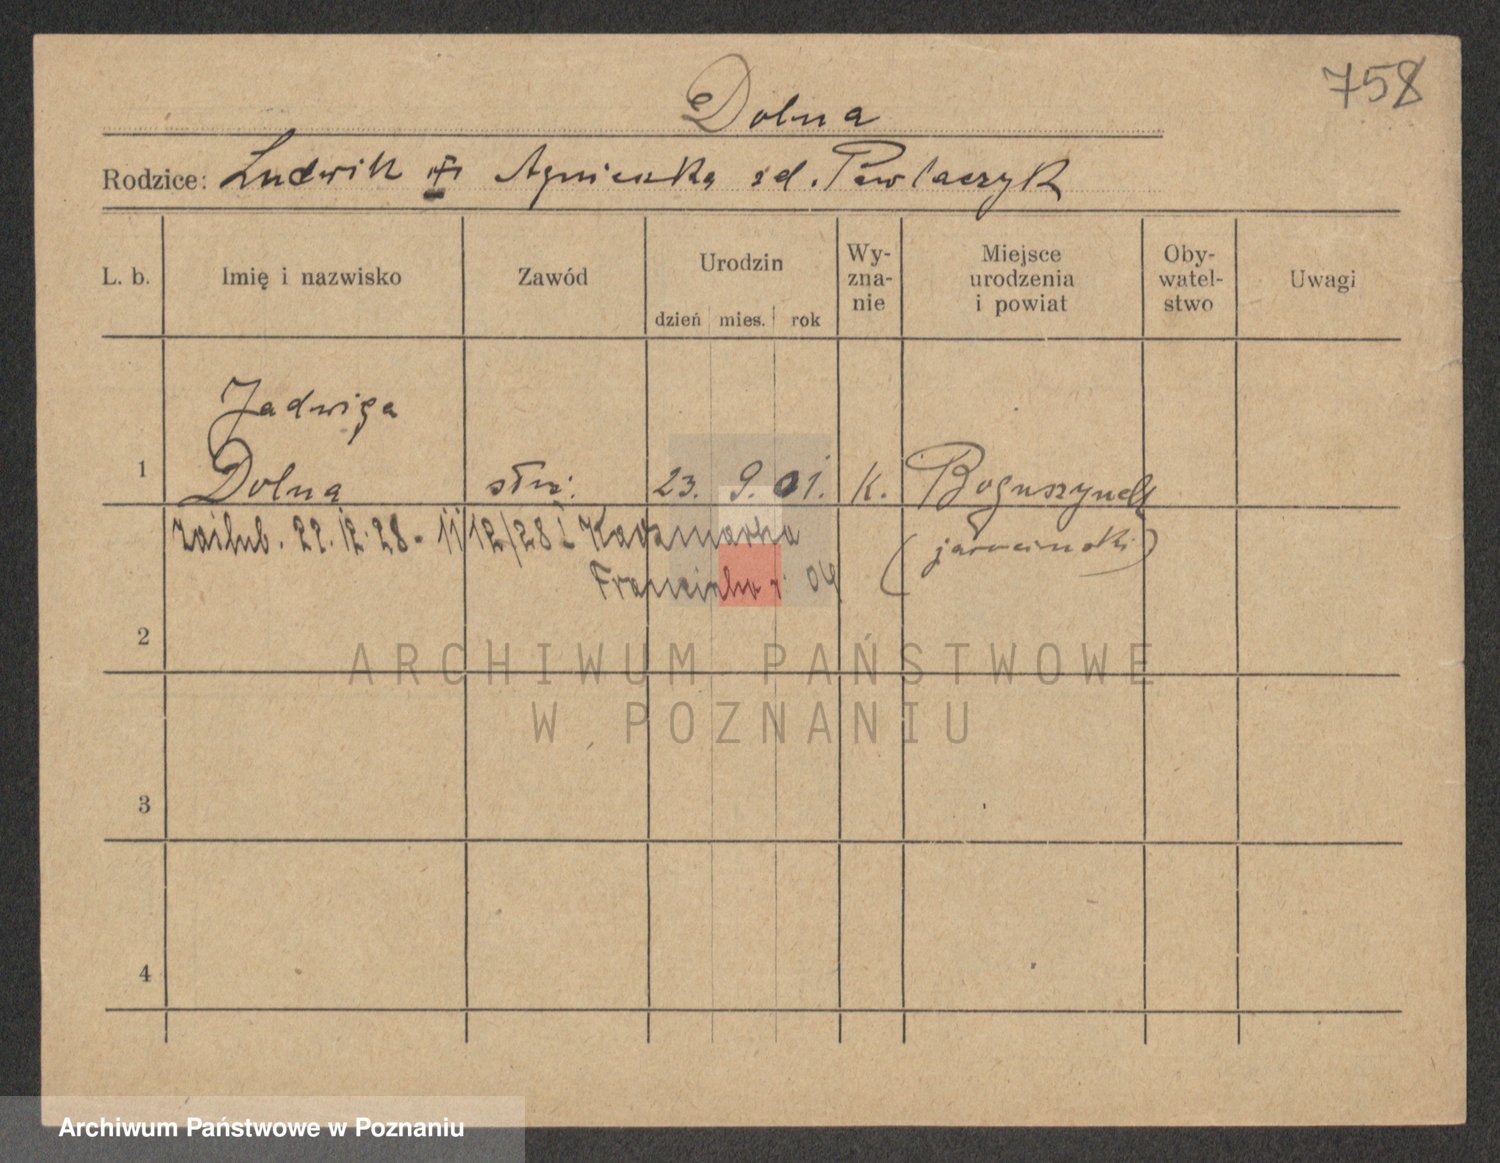 758
Dolna
Rodzice: Ludwik Agnieszka zd. Pawlaczyk
L. b. Imię i nazwisko Zawód Urodzin dzień mies. rok Wy-zna-nie Miejsce urodzenia i powiat Oby-watel-stwo Uwagi
Jadwiga
1 Dolna służ. 23. 9. 01. k. Boguszynek
12/28 Kaczmarka (jarociński)
Franciszka 04
2
ARCHIWUM PAŃSTWOWE
W POZNANIU
3
4
Archiwum Państwowe w Poznaniu